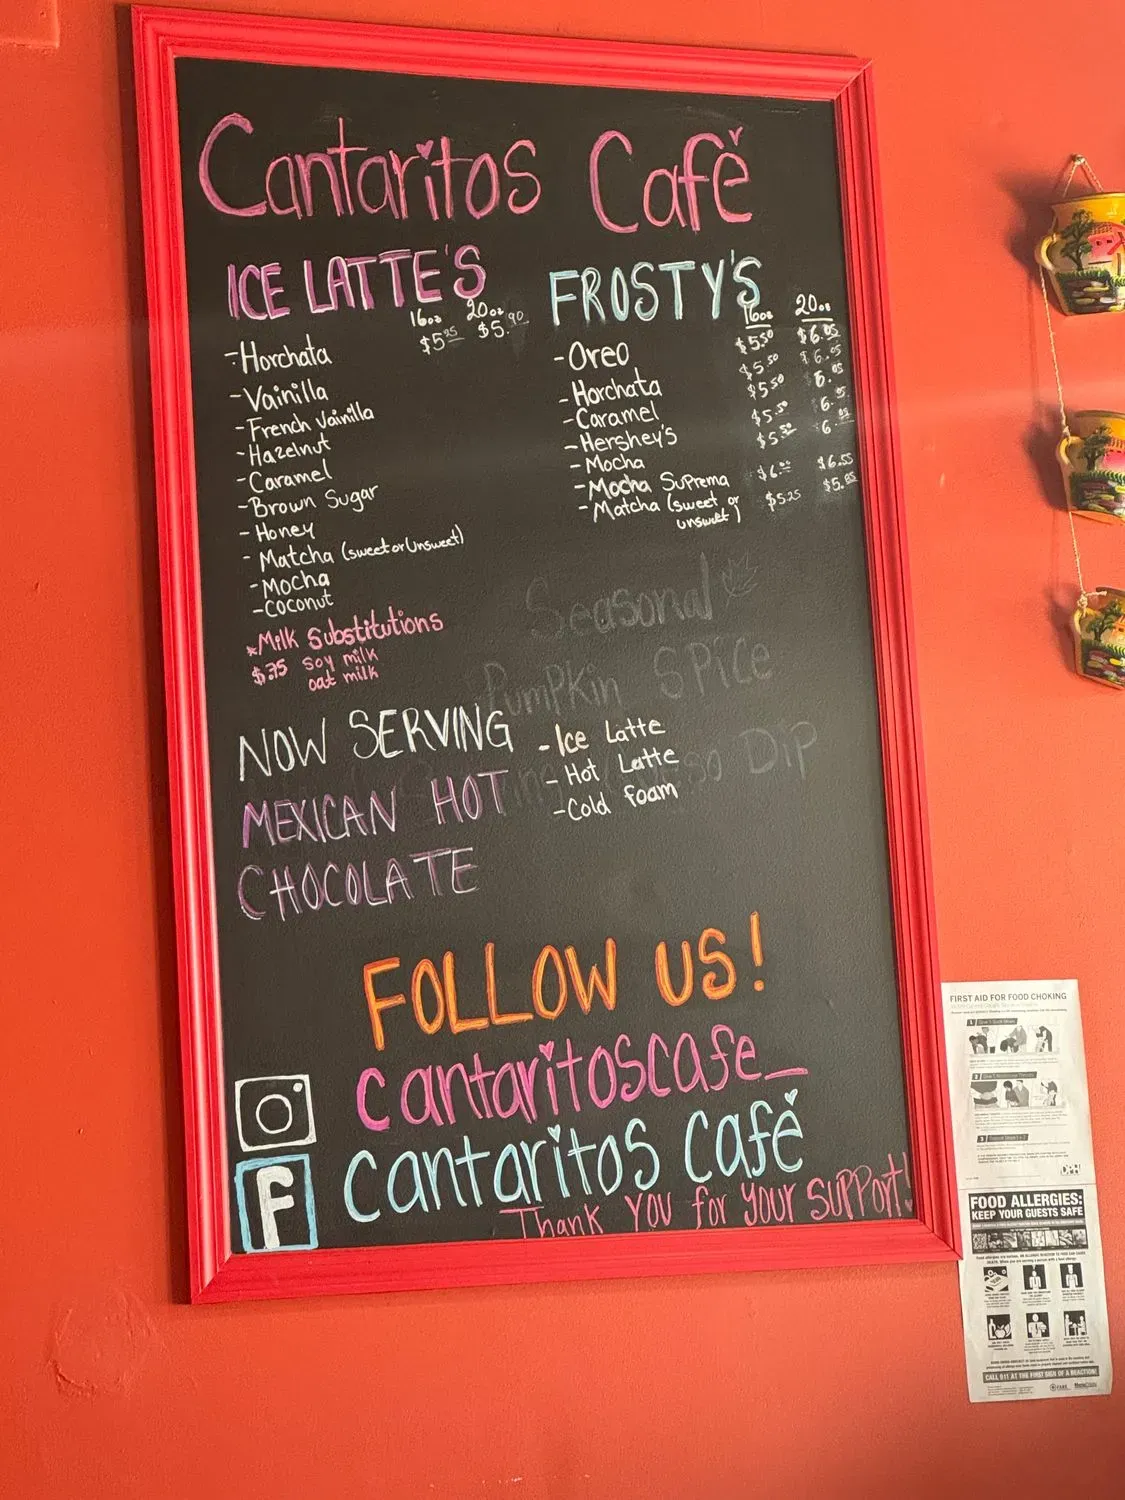 Cantaritos Café
ICE LATTE'S
16oz 20oz
$5.25 $5.90
- Horchata
- Vainilla
- French Vainilla
- Hazelnut
- Caramel
- Brown Sugar
- Honey
- Matcha (sweet or Unsweet)
- Mocha
- Coconut
*Milk Substitutions
$.75 soy milk
oat milk
FROSTY'S
16oz 20oz
- Oreo $5.50 $6.05
- Horchata $5.50 $6.05
- Caramel $5.50 6.05
- Hershey's $5.50 6.05
- Mocha $5.50 6.05
- Mocha Suprema $6.00 $6.55
- Matcha (sweet or $5.25 $5.85
unsweet)
Seasonal
Pumpkin Spice
Dip
NOW SERVING
MEXICAN HOT
CHOCOLATE
- Ice Latte
- Hot Latte
- Cold foam
FOLLOW US!
cantaritoscafe_
F
Cantaritos Café
Thank you for your support!
FIRST AID FOR FOOD CHOKING
1
2
3
DPH
FOOD ALLERGIES:
KEEP YOUR GUESTS SAFE
CALL 911 AT THE FIRST SIGN OF A REACTION!